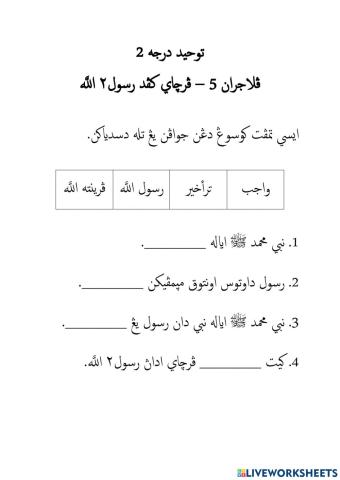 توحيد درجه 2
ڤلاجرن 5 – ڤرچاي كڤد رسول٢ الله
ايسي تمڤت كوسوڠ دڠن جواڤن يڠ تله دسدياكن.
واجب ترأخير رسول الله ڤرينته الله
1. نبي محمد ﷺ اياله __________.
2. رسول داوتوس اونتوق مپمڤيكن __________.
3. نبي محمد ﷺ اياله نبي دان رسول يڠ __________.
4. كيت __________ ڤرچاي اداڽ رسول٢ الله.
LIVEWORKSHEETS